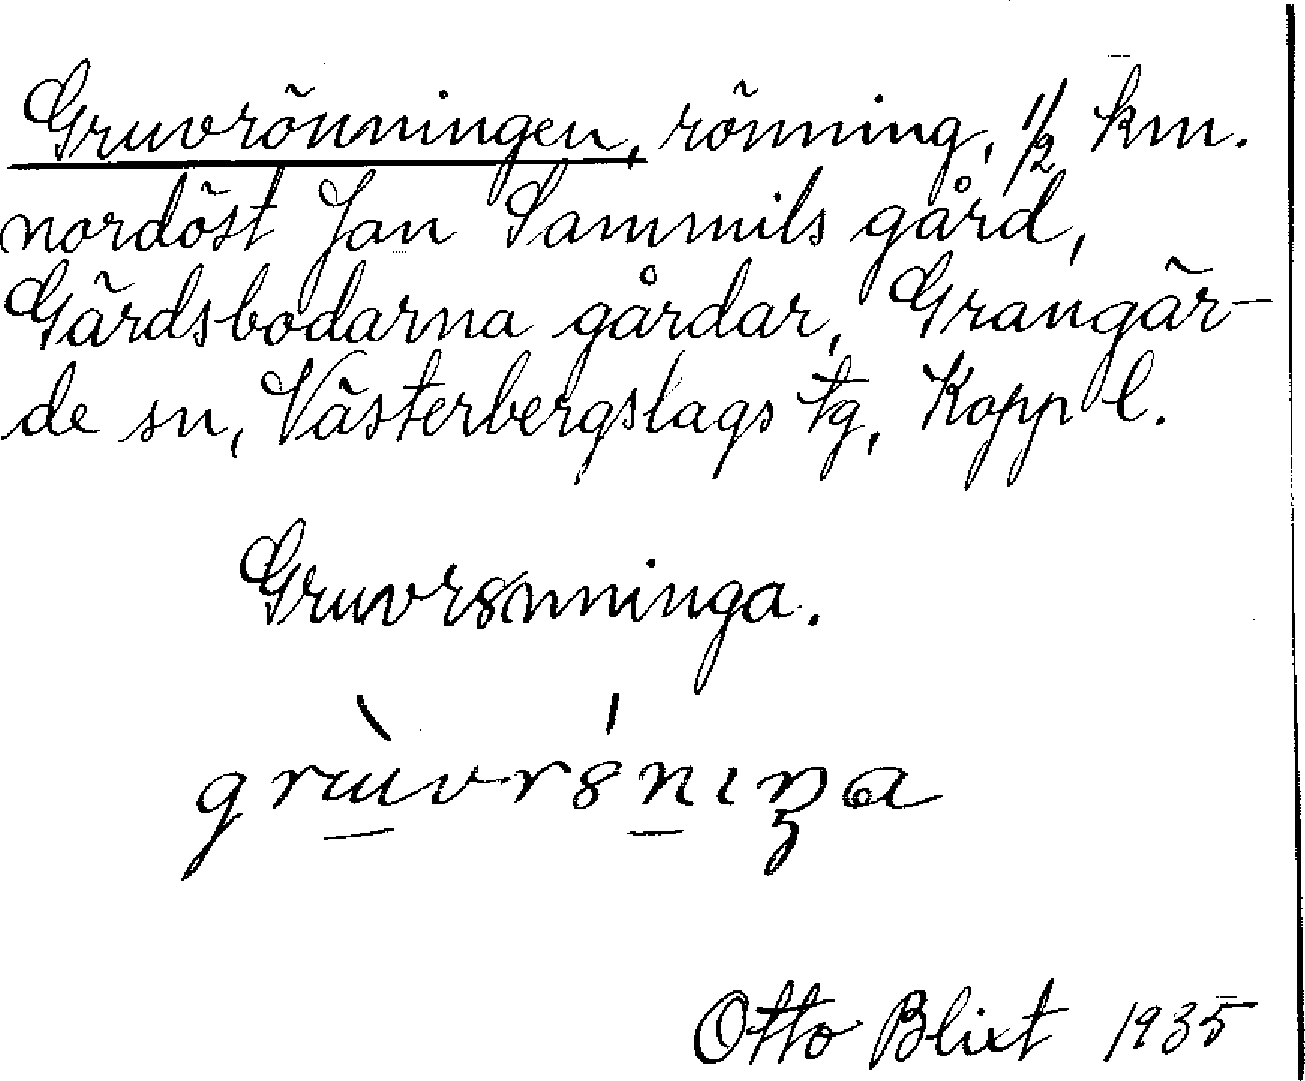 Gruvrönningen, rönning, 1/2 km.
nordöst Jan Sammils gård,
Gärdsbodarna gårdar, Grangär-
de sn, Västerbergslags tg, Kopp l.
Gruvrönninga.
Otto Blixt 1935